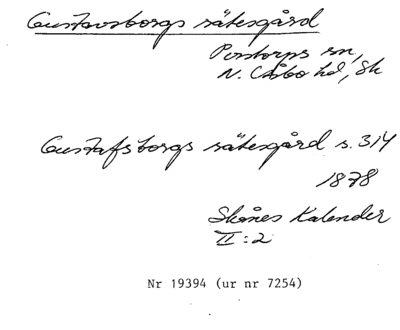 Gustavsborgs sätesgård
Perstorps sn,
N. Åsbo hd, Sk
Gustafsborgs sätesgård s. 314
1878
Skånes Kalender
II:2
Nr 19394 (ur nr 7254)